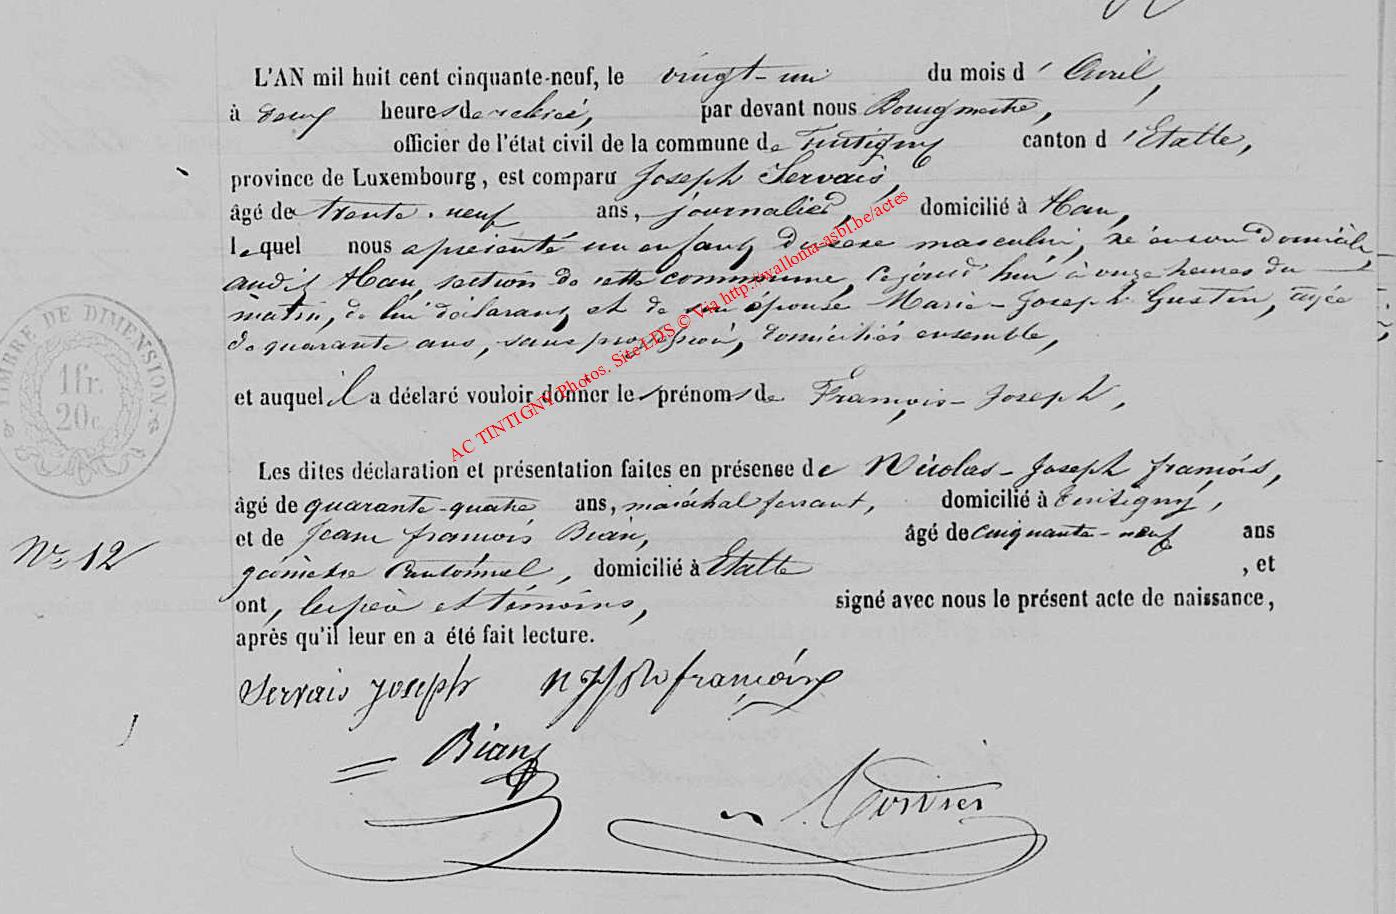 L'AN mil huit cent cinquante-neuf, le vingt-un du mois d'Avril,
à deux heures de relevée, par devant nous Bourgmestre,
officier de l'état civil de la commune de Tintigny canton d'Etalle,
province de Luxembourg, est comparu Joseph Servais,
âgé de trente-neuf ans, journalier, domicilié à Han,
lequel nous a présenté un enfant du sexe masculin, né en son domicile
audit Han, section de cette commune, ce jourd'hui à onze heures du
matin, de lui déclarant et de son épouse Marie-Joseph Gustin, agée
de quarante ans, sans profession, domiciliés ensemble,
et auquel il a déclaré vouloir donner les prénoms de François-Joseph,
Les dites déclaration et présentation faites en présense de Nicolas-Joseph françois,
âgé de quarante-quatre ans, maréchal ferrant, domicilié à Tintigny,
et de Jean françois Bian, âgé de cinquante-neuf ans
cantonnal, domicilié à Etalle, et
ont, les père et témoins, signé avec nous le présent acte de naissance,
après qu'il leur en a été fait lecture.
Servais Joseph françois
Bian
TIMBRE DE DIMENSION.
1 fr.
20 c.
No 12
AC TINTIGNY Photos. Site LDS © Via http://wallonia-asbl.be/actes